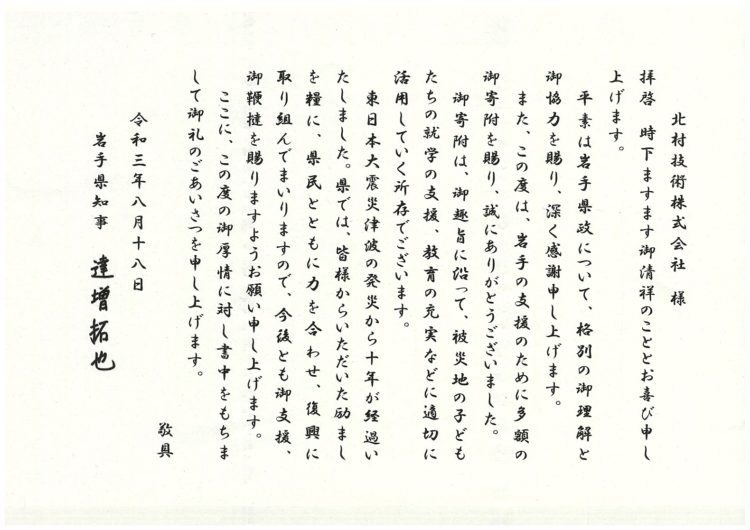 北村技術株式会社 様
拝啓 時下ますます御清祥のこととお喜び申し
上げます。
平素は岩手県政について、格別の御理解と
御協力を賜り、深く感謝申し上げます。
また、この度は、岩手の支援のために多額の
御寄附を賜り、誠にありがとうございました。
御寄附は、御趣旨に沿って、被災地の子ども
たちの就学の支援、教育の充実などに適切に
活用していく所存でございます。
東日本大震災津波の発災から十年が経過い
たしました。県では、皆様からいただいた励まし
を糧に、県民とともに力を合わせ、復興に
取り組んでまいりますので、今後とも御支援、
御鞭撻を賜りますようお願い申し上げます。
ここに、この度の御厚情に対し書中をもちま
して御礼のごあいさつを申し上げます。
敬具
令和三年八月十八日
岩手県知事 達増拓也